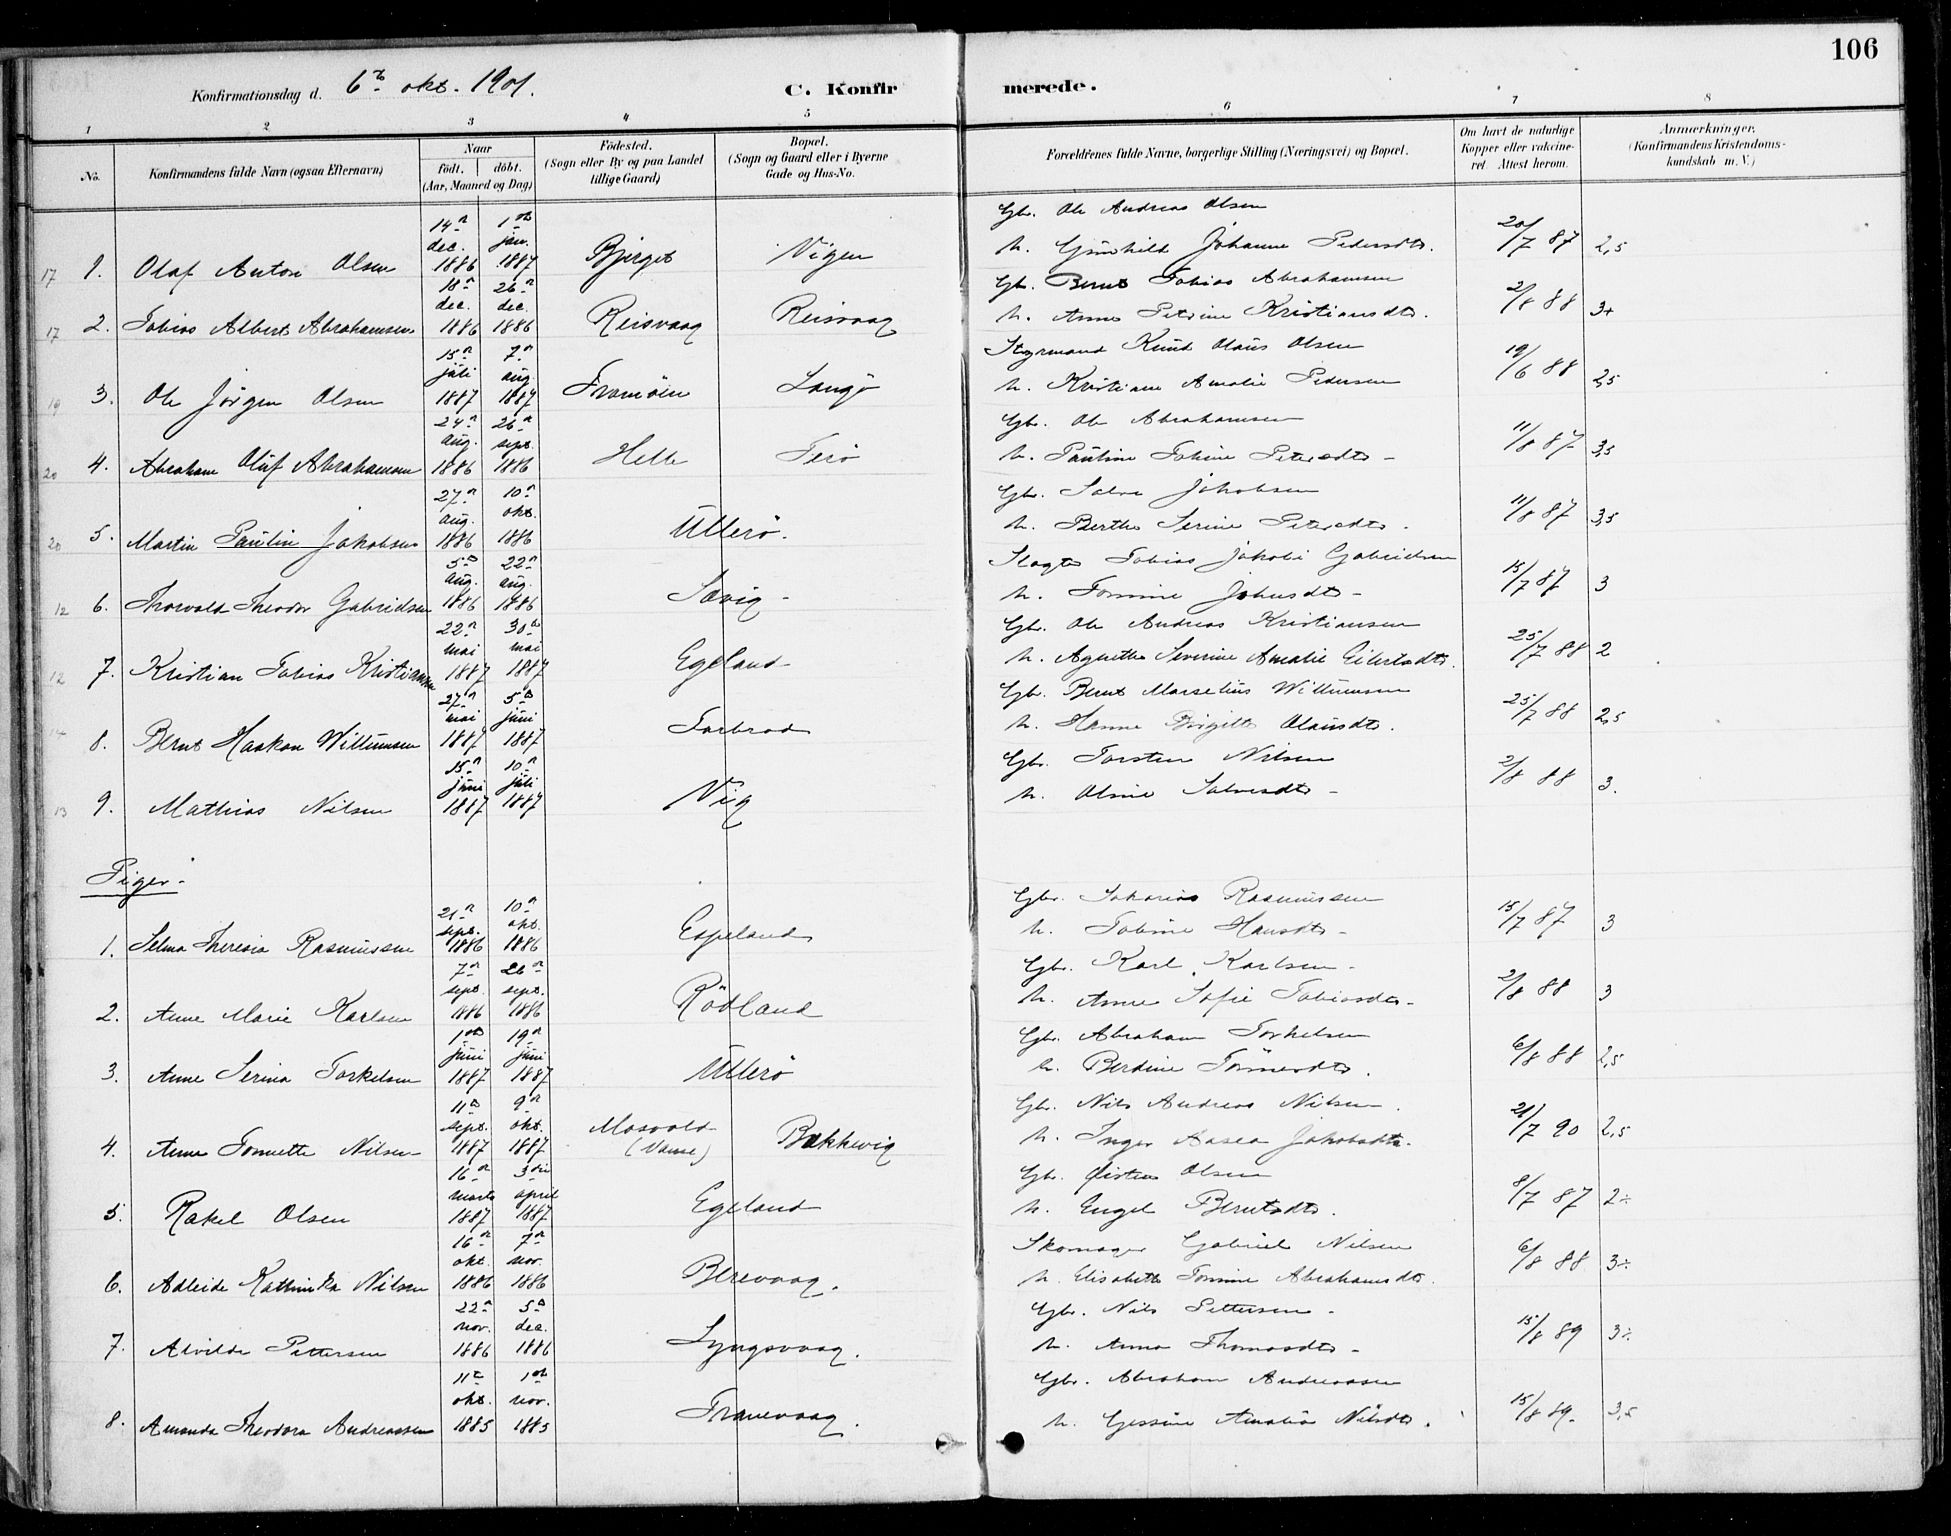 106
Konfirmationsdag d. 6te okt. 1901.
C. Konfirmerede.
1 2 3 4 5 6 7 8
No.
Konfirmandens fulde Navn (ogsaa Efternavn)
Naar
födt. döbt.
(Aar, Maaned og Dag)
Födested.
(Sogn eller By og paa Landet
tillige Gaard)
Bopæl.
(Sogn og Gaard eller i Byerne
Gade og Hus-No.
Forældrenes fulde Navne, borgerlige Stilling (Næringsvei) og Bopæl.
Om havt de naturlige
Kopper eller vakcine-
ret. Attest herom.
Anmærkninger.
(Konfirmandens Kristendoms-
kundskab m. V.)
17 1. Olaf Anton Olsen 14de dec. 1886 1ste jan. 1887 Vigen
Gbr. Ole Andreas Olsen
h. Gunhild Johanne Pedersdtr. 20/7 87 2,5
17 2. Tobias Albert Abrahamsen 18de dec. 1886 26de dec. 1886 Reisvaag Reisvaag
Gbr. Bernt Tobias Abrahamsen
h. Anne Petrine Kristiansdtr. 2/8 88 3+
19 3. Ole Jörgen Olsen 15de juli 1887 7de aug. 1887 Tromöen Langö
Styrmand Knud Olaus Olsen
h. Kristiane Amalie Pedersen 19/6 88 2,5
20 4. Abraham Oluf Abrahamsen 24de aug. 1886 26de sept. 1886 Helle Terö
Gbr. Ole Abrahamsen
h. Pauline Tobine Petersdtr 11/8 87 3,5
20 5. Martin Paulin Jakobsen 27de aug. 1886 10de okt. 1886 Ullerö.
Gbr. Salve Jakobsen
h. Berthe Serine Petersdtr. 11/8 87 3,5
12 6. Thorvald Theodor Gabrielsen 5te aug. 1886 22de aug. 1886 Sævig
Tobias Jakob Gabrielsen
h. Tomine Johnsdtr 15/7 87 3
12 7. Kristian Tobias Kristiansen 22de mai 1887 30te mai 1887 Egeland
Gbr. Ole Andreas Kristiansen
h. Agnethe Severine Amalie Eilertsdtr. 25/7 88 2
8. Bernt Haakon Willumsen 27de mai 1887 5te juni 1887
Gbr. Bernt Marselius Willumsen
h. Hanne Birgitte Olausdtr. 25/7 88 2,5
13 9. Mathias Nilsen 15de juni 1887 10de juli 1887 Vig
Gbr. Torsten Nilsen
h. Oline Salvesdtr 2/8 88 3.
Piger.
1. Selma Theresia Rasmussen 21de sept. 1886 10de okt. 1886 Espeland
Gbr. Sakarias Rasmussen
h. Tobine Hansdtr 15/7 87 3
2. Anne Marie Karlsen 7de sept. 1886 26de sept. 1886 Rödland
Gbr. Karl Karlsen
h. Anne Sofie Tobiasdtr 2/8 88 3
3. Anne Serina Torkelsen 1ste juni 1887 19de juni 1887 Ullerö
Gbr. Abraham Torkelsen
h. Berdine Tönnesdtr. 6/8 88 2,5
4. Anne Tonnette Nilsen 11te sept. 1887 9de okt. 1887 Mosvold (Vanse) Bakkevig
Gbr. Nils Andreas Nilsen
h. Inger Aasea Jakobsdtr. 21/7 90 2,5
5. Rakel Olsen 16de marts 1887 3die april 1887 Egeland
Gbr. Olsen
h. Engel Berntsdtr. 8/7 87 2÷
6. Adleide Kathinka Nilsen 16de okt. 1886 7de nov. 1886 Berevaag.
Skomager Gabriel Nilsen
h. Elisabeth Tomine Abrahamsdtr. 6/8 88 3÷
7. Alvilde Pettersen 22de nov. 1886 5te dec. 1886 Lyngsvaag.
Gbr. Nils Pettersen
h. Anna Thomasdtr 15/8 89 3÷
8. Amanda Theodora Andreassen 11te okt. 1885 1ste nov. 1885 Tranevaag.
Gbr. Abraham Andreassen
h. Gessine Amalia Nilsdtr. 15/8 89. 3,5